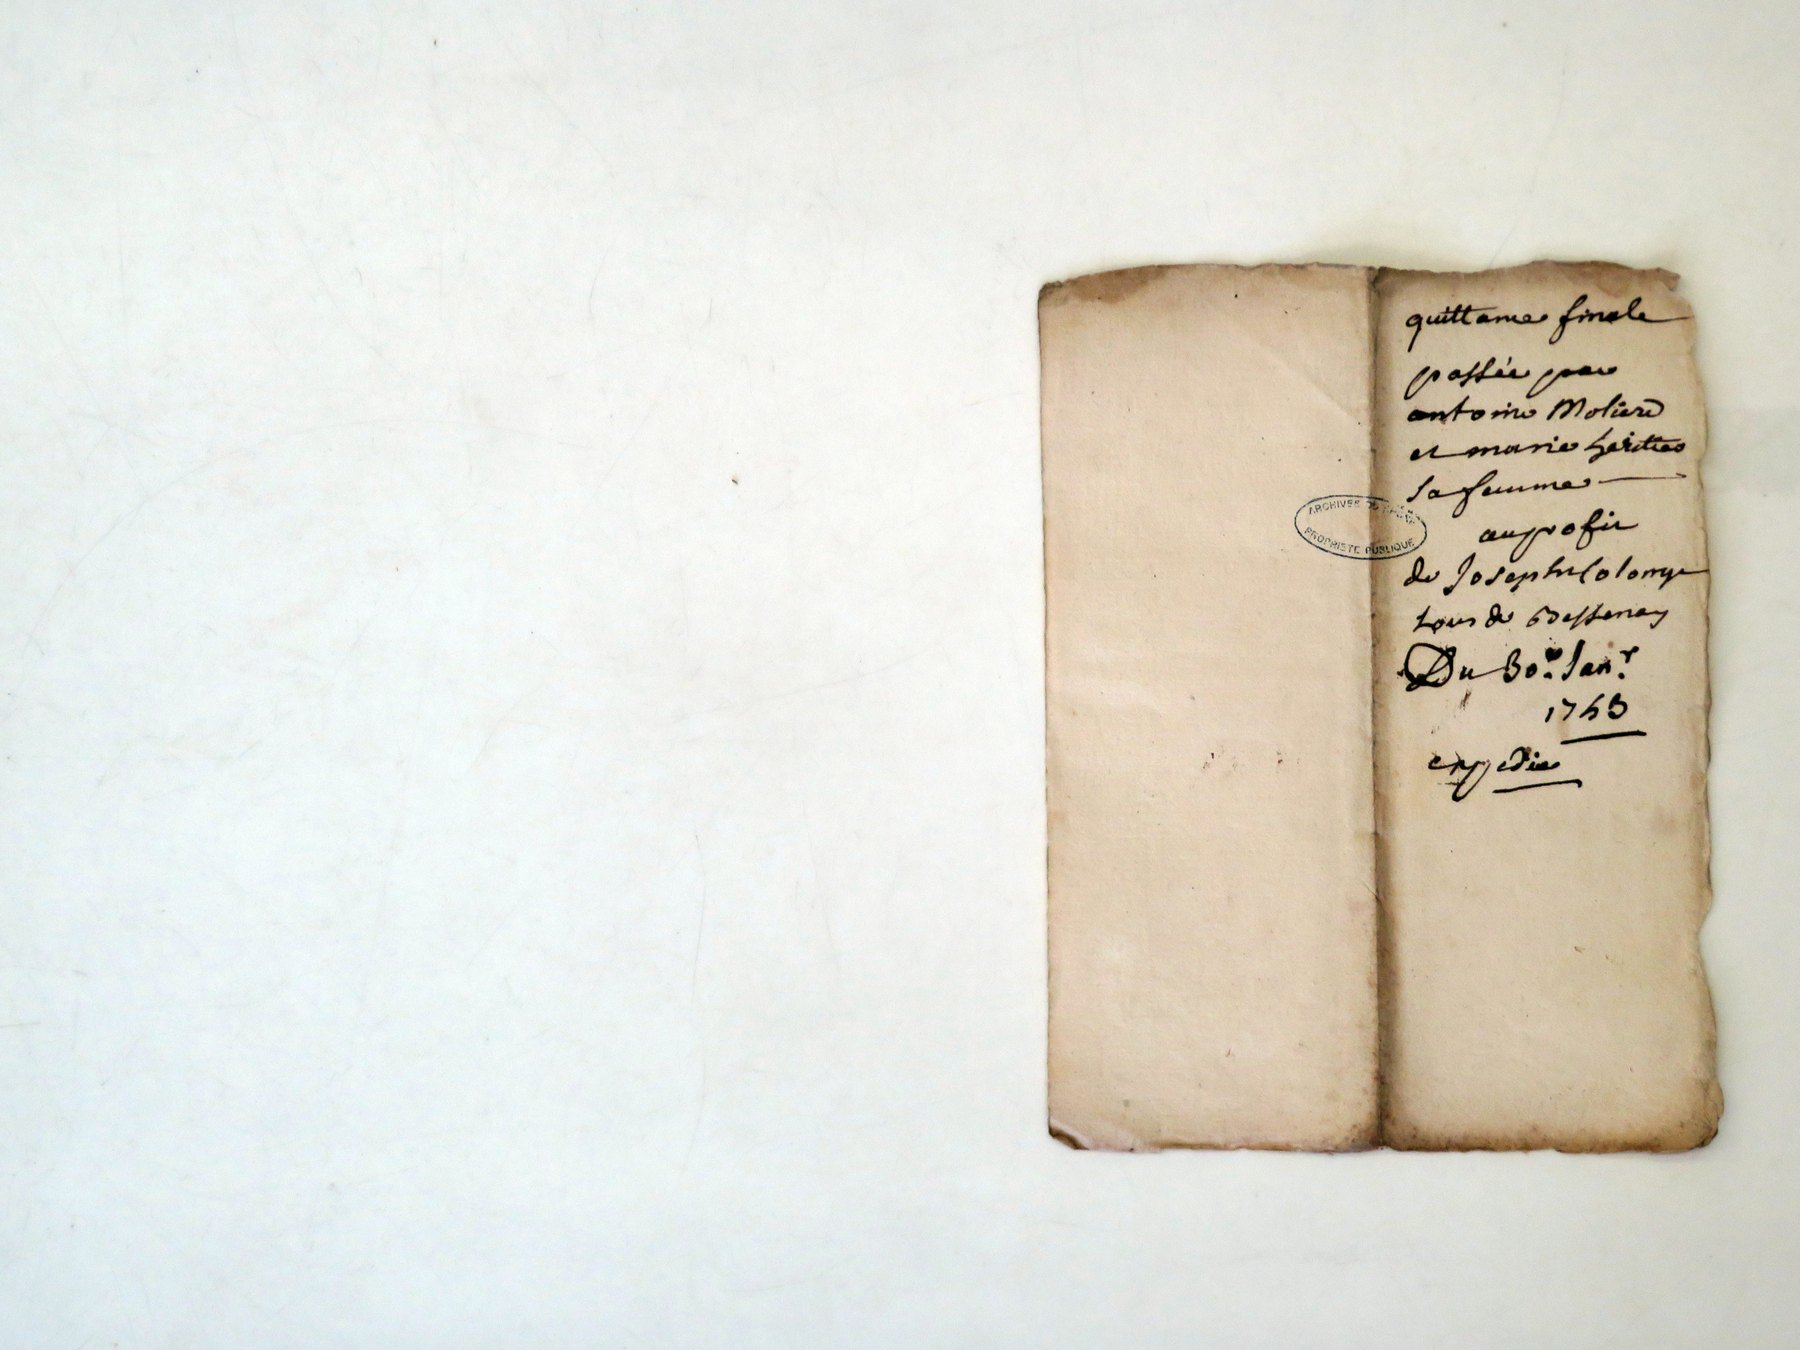 quittance finale
passée par
antoine Moliere
et marie heritier
sa femme
au profit
de Joseph Colonge
tous de Bessenay
Du 30.e Jan.r
1763
expedié
ARCHIVES DU RHÔNE
PROPRIÉTÉ PUBLIQUE